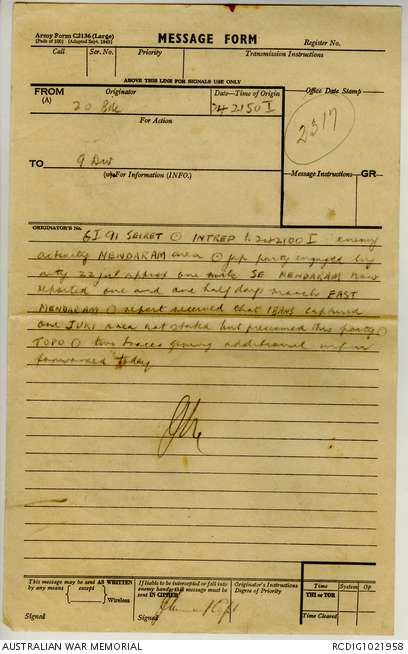 Army Form C2136 (Large)
(Pads of 100) (Adapted Sept. 1943)
MESSAGE FORM
Register No.
Call Ser. No. Priority Transmission Instructions
ABOVE THIS LINE FOR SIGNALS USE ONLY
FROM Originator Date—Time of Origin Office Date Stamp
(A) 20 Bde 242150 I
2317
For Action
TO 9 Div
(W) For Information (INFO.)
Message Instructions GR
ORIGINATOR'S No.
6I 91 SECRET INTREP to 242100 I enemy
activity MENDARAM area jap party engaged by
arty 22 jul approx one mile SE MENDARAM now
reported one and one half days march EAST
MENDARAM report received that IBANS captured
one JUKI area not stated but presumed this party
TOPO two traces giving additional inf
forwarded today
This message may be sent AS WRITTEN
by any means except Wireless
Signed
If liable to be intercepted or fall into
enemy hands this message must be
sent IN CIPHER
Signed Capt
Originator's Instructions
Degree of Priority
Time System Op
THI or TOR
Time Cleared
AUSTRALIAN WAR MEMORIAL
RCDIG1021958